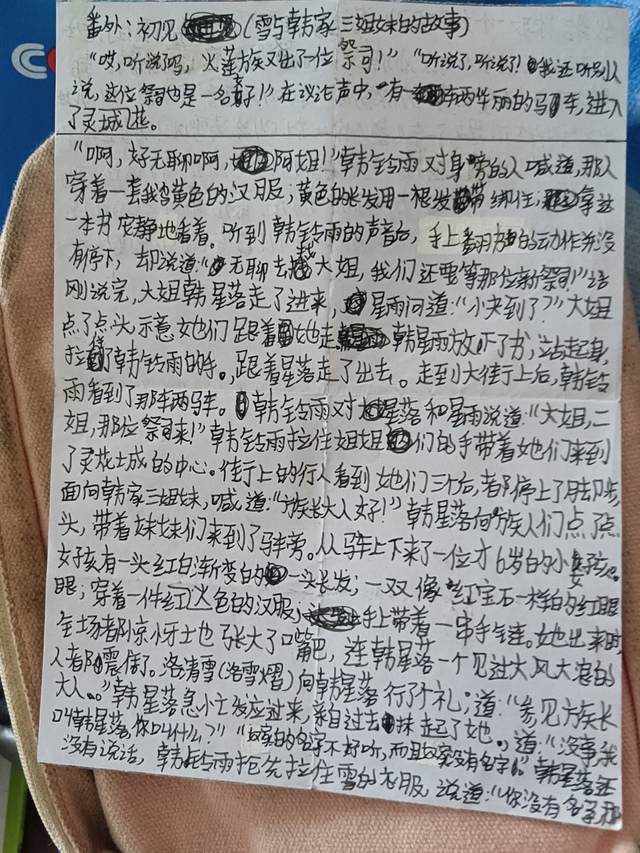 番外:初见(雪与韩家三姐妹的故事)
“哎,听说了吗,火莲族又出了一位祭司!”“听说了,听说了!我还听别人
说,这位祭司也是一名女子!”在议论声中,有一辆华丽的马车,进入
了灵城边。
“啊,好无聊啊,阿姐!”韩铃雨对身旁的人喊道,那人
穿着一套黄色的汉服;黄色的长发用一根发带绑住;拿这
一本书安静地看着。听到韩铃雨的声音后,手上翻书的动作并没
有停下,却说道:“无聊去找大姐,我们还要等那位新祭司!”话
刚说完,大姐韩星落走了进来,星雨问道:“小夬到了?”大姐
点了点头,示意她们跟着她走,韩星雨放下了书,站起身,
拉住了韩铃雨的手。,跟着星落走了出去。走到大街上后,韩铃
雨看到了那辆马车。韩铃雨对星落和星雨说道:“大姐,二
姐,那位祭司来!”韩铃雨拉住姐姐们的手带着她们来到
了灵花城的中心。街上的行人看到她们三个后,都停上了脚步,
面向韩家三姐妹,喊道:“族长大人好!”韩星落向族人们点了点
头,带着妹妹们来到了马车旁。从马车上下来了一位才6岁的小女孩。
女孩有一头红白渐变的一头长发;一双像红宝石一样的红眼
眼;穿着一件红火色的汉服,手上带着一串手链。她出来时,
全场都惊讶也张大了嘴巴,连韩星落一个见过大风大浪的
人都震惊了。洛清雪(洛雪熠)向韩星落行了个礼;道:“参见方族长
大人。。”韩星落急忙反应过来,亲自过去扶起了她。,道:“没事,我
叫韩星落,你叫什么?”“奴的名字不好听,而且奴家没有名字。”韩星落还
没有说话,韩铃雨抢先拉住雪的衣服,说道:“你没有名字那